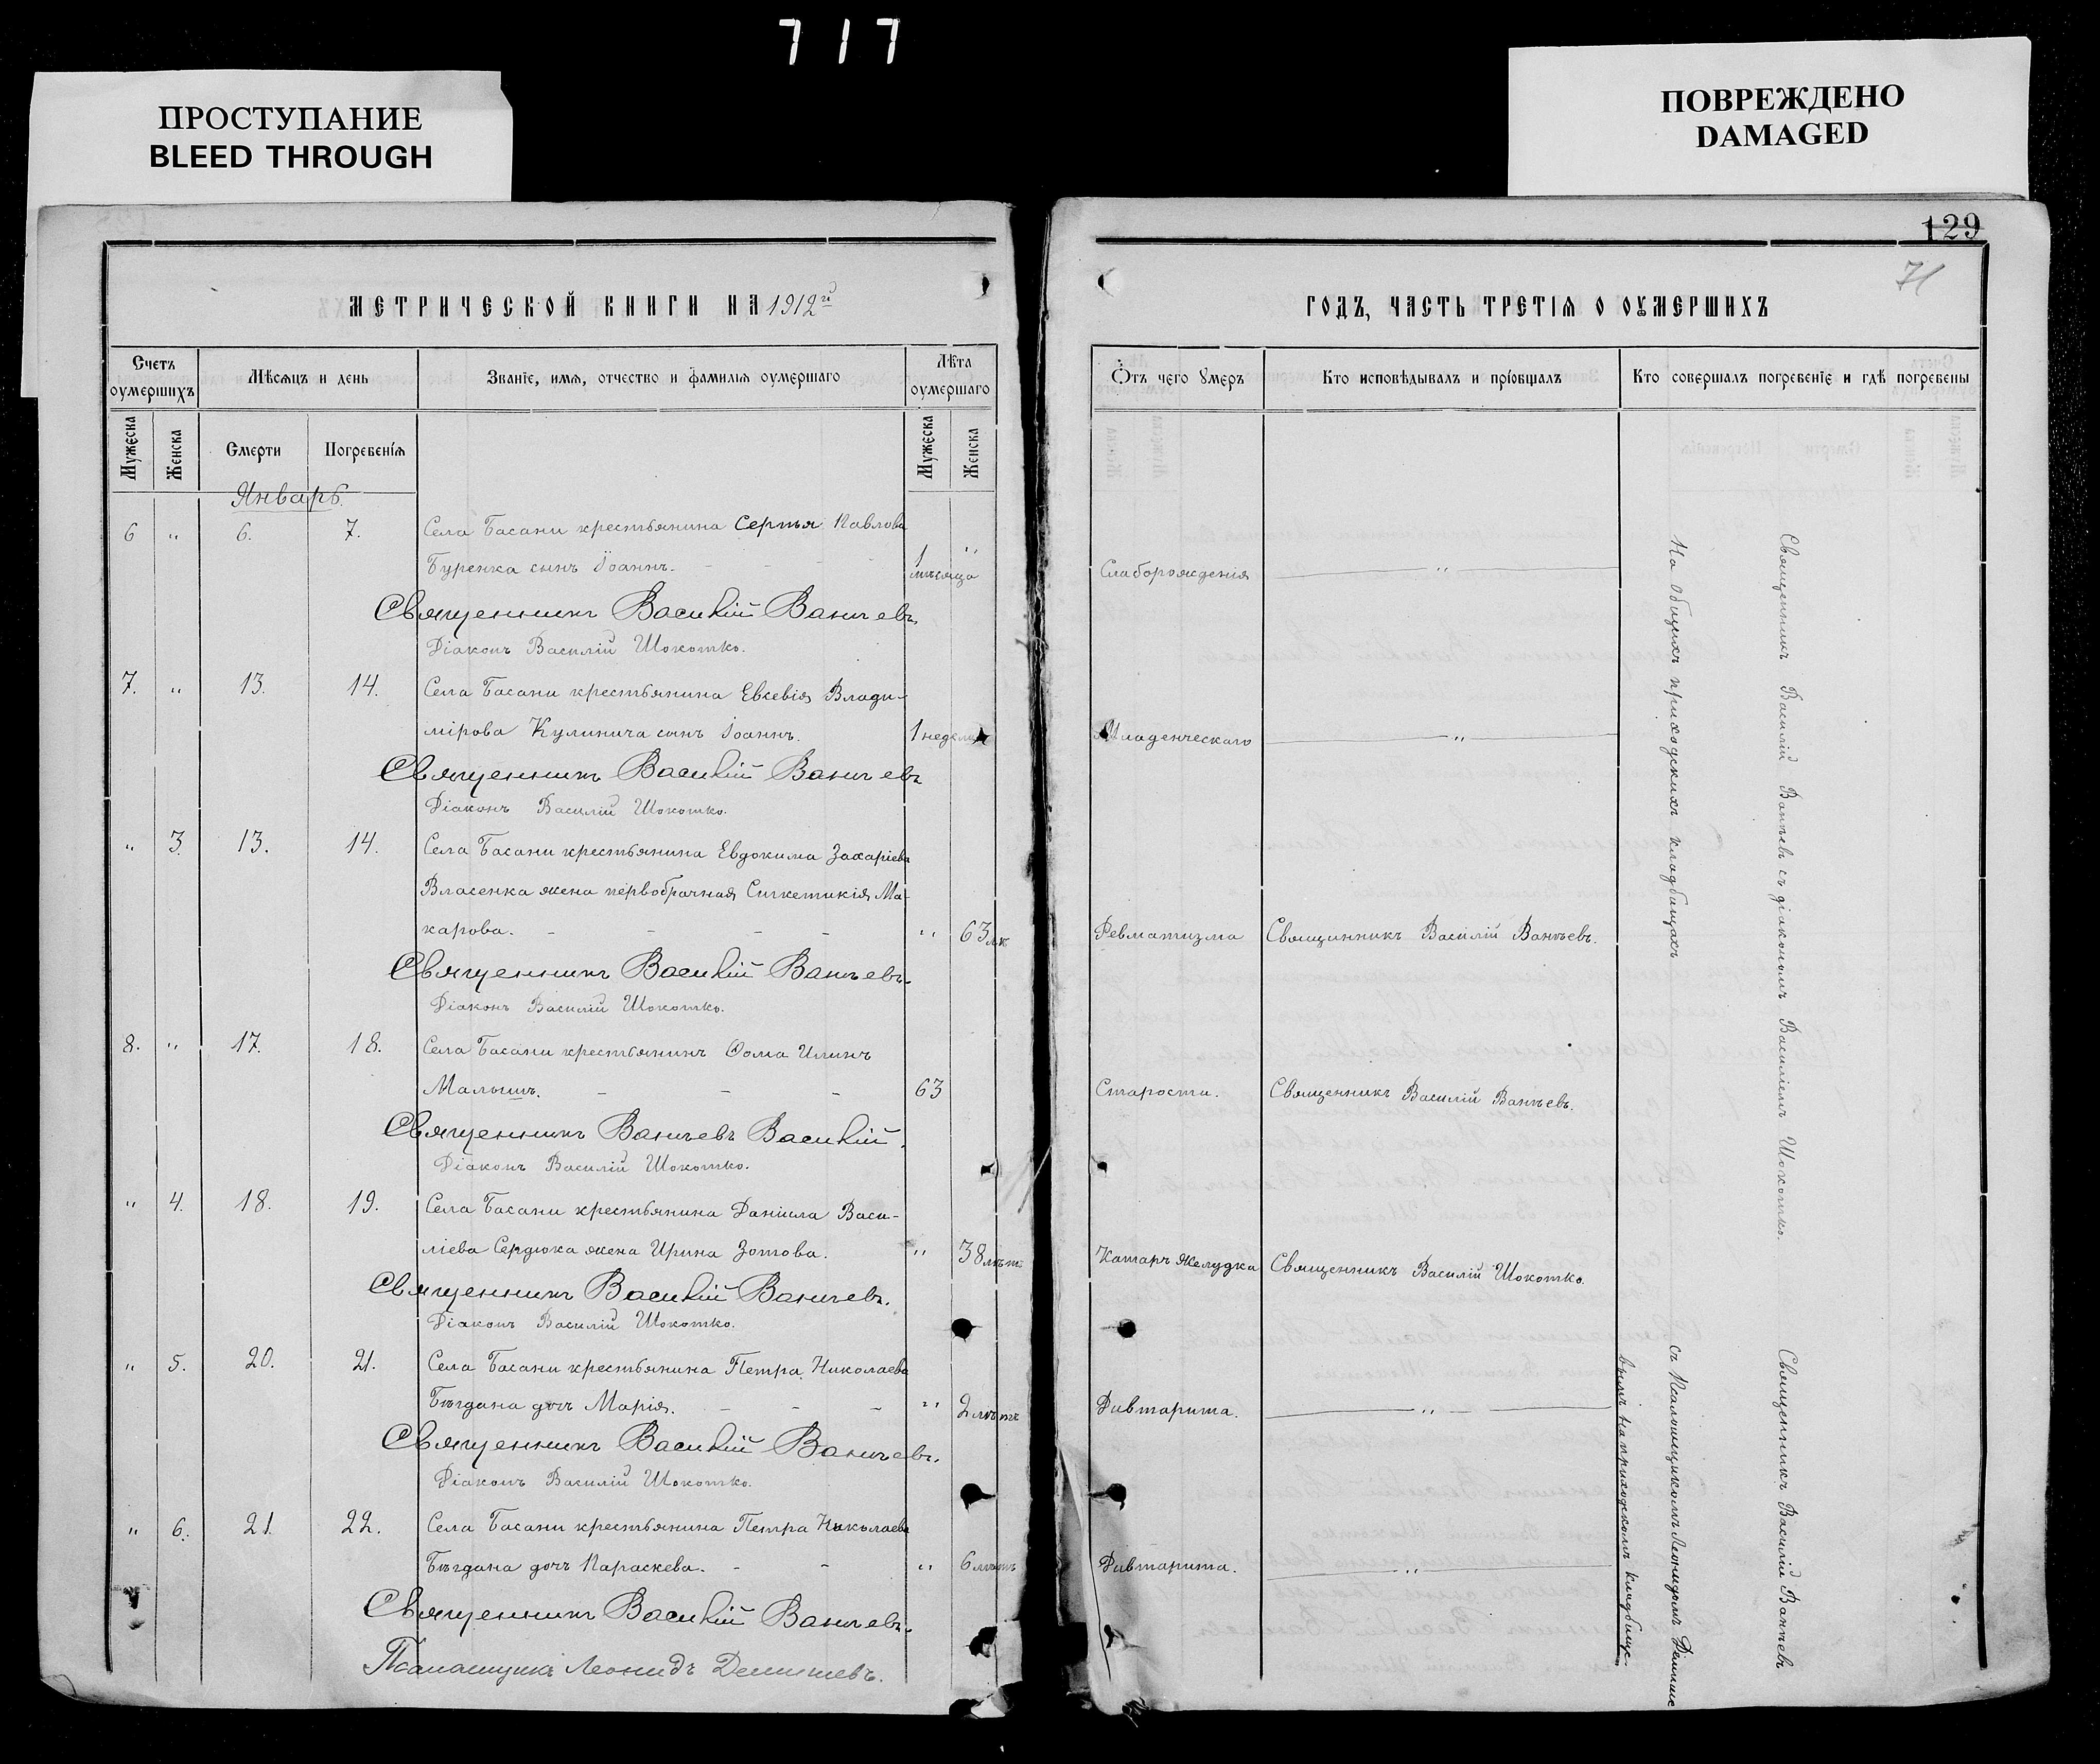 717
ПРОСТУПАНИЕ
BLEED THROUGH
ПОВРЕЖДЕНО
DAMAGED
МЕТРИЧЕСКОЙ КНИГИ НА 1912й
Счетъ оумершихъ
Мѣсяцъ и день
Званіе, имя, отчество и фамилія оумершаго
Лѣта оумершаго
Мужеска
Женска
Смерти
Погребенія
Мужеска
Женска
Январь.
6 " 6. 7. Села Басани крестьянина Сергѣя Павлова
Буренка сынъ Іоаннъ. 1 мѣсяца "
Священникъ Василій Ванчевъ.
Діаконъ Василій Шокотко.
7. " 13. 14. Села Басани крестьянина Евсевія Влади-
мірова Кулинича сынъ Іоаннъ. 1 недели
Священникъ Василій Ванчевъ
Діаконъ Василій Шокотко.
" 3. 13. 14. Села Басани крестьянина Евдокима Захаріева
Власенка жена первобрачная Синкетикія Ма-
карова. " 63
Священникъ Василій Ванчевъ.
Діаконъ Василій Шокотко.
8. " 17. 18. Села Басани крестьянинъ Ѳома Илинъ
Малышъ. 63
Священникъ Ванчевъ Василій.
Діаконъ Василій Шокотко.
" 4. 18. 19. Села Басани крестьянина Даніила Васи-
ліева Сердюка жена Ирина Зотова. " 38 лѣтъ
Священникъ Василій Ванчевъ.
Діаконъ Василій Шокотко.
" 5. 20. 21. Села Басани крестьянина Петра Николаева
Бѣгдана дочь Марія. " 2 лѣтъ
Священникъ Василій Ванчевъ.
Діаконъ Василій Шокотко.
" 6. 21 22. Села Басани крестьянина Петра Николаева
Бѣгдана дочь Параскева. " 6 лѣтъ
Священникъ Василій Ванчевъ.
Псаломщикъ Леонидъ
129
71
ГОДЪ, ЧАСТЬ ТРЕТІЯ О ОУМЕРШИХЪ
Ѿтъ чего умеръ
Кто исповѣдывалъ и пріобщалъ
Кто совершалъ погребеніе и гдѣ погребены
Слаборожденія "
Младенческаго "
Ревматизма Священникъ Василій Ванчевъ.
Старости. Священникъ Василій Ванчевъ.
Катаръ желудка Священникъ Василій Шокотко.
Дивтарита. "
Дивтарита. "
Священникъ Василій Ванчевъ съ діакономъ Василіемъ Шокотко.
На общихъ приходскихъ кладбищахъ
Священникъ Василій Ванчевъ
съ Псаломщикомъ Леонидомъ
вымъ на приходскомъ кладбище.